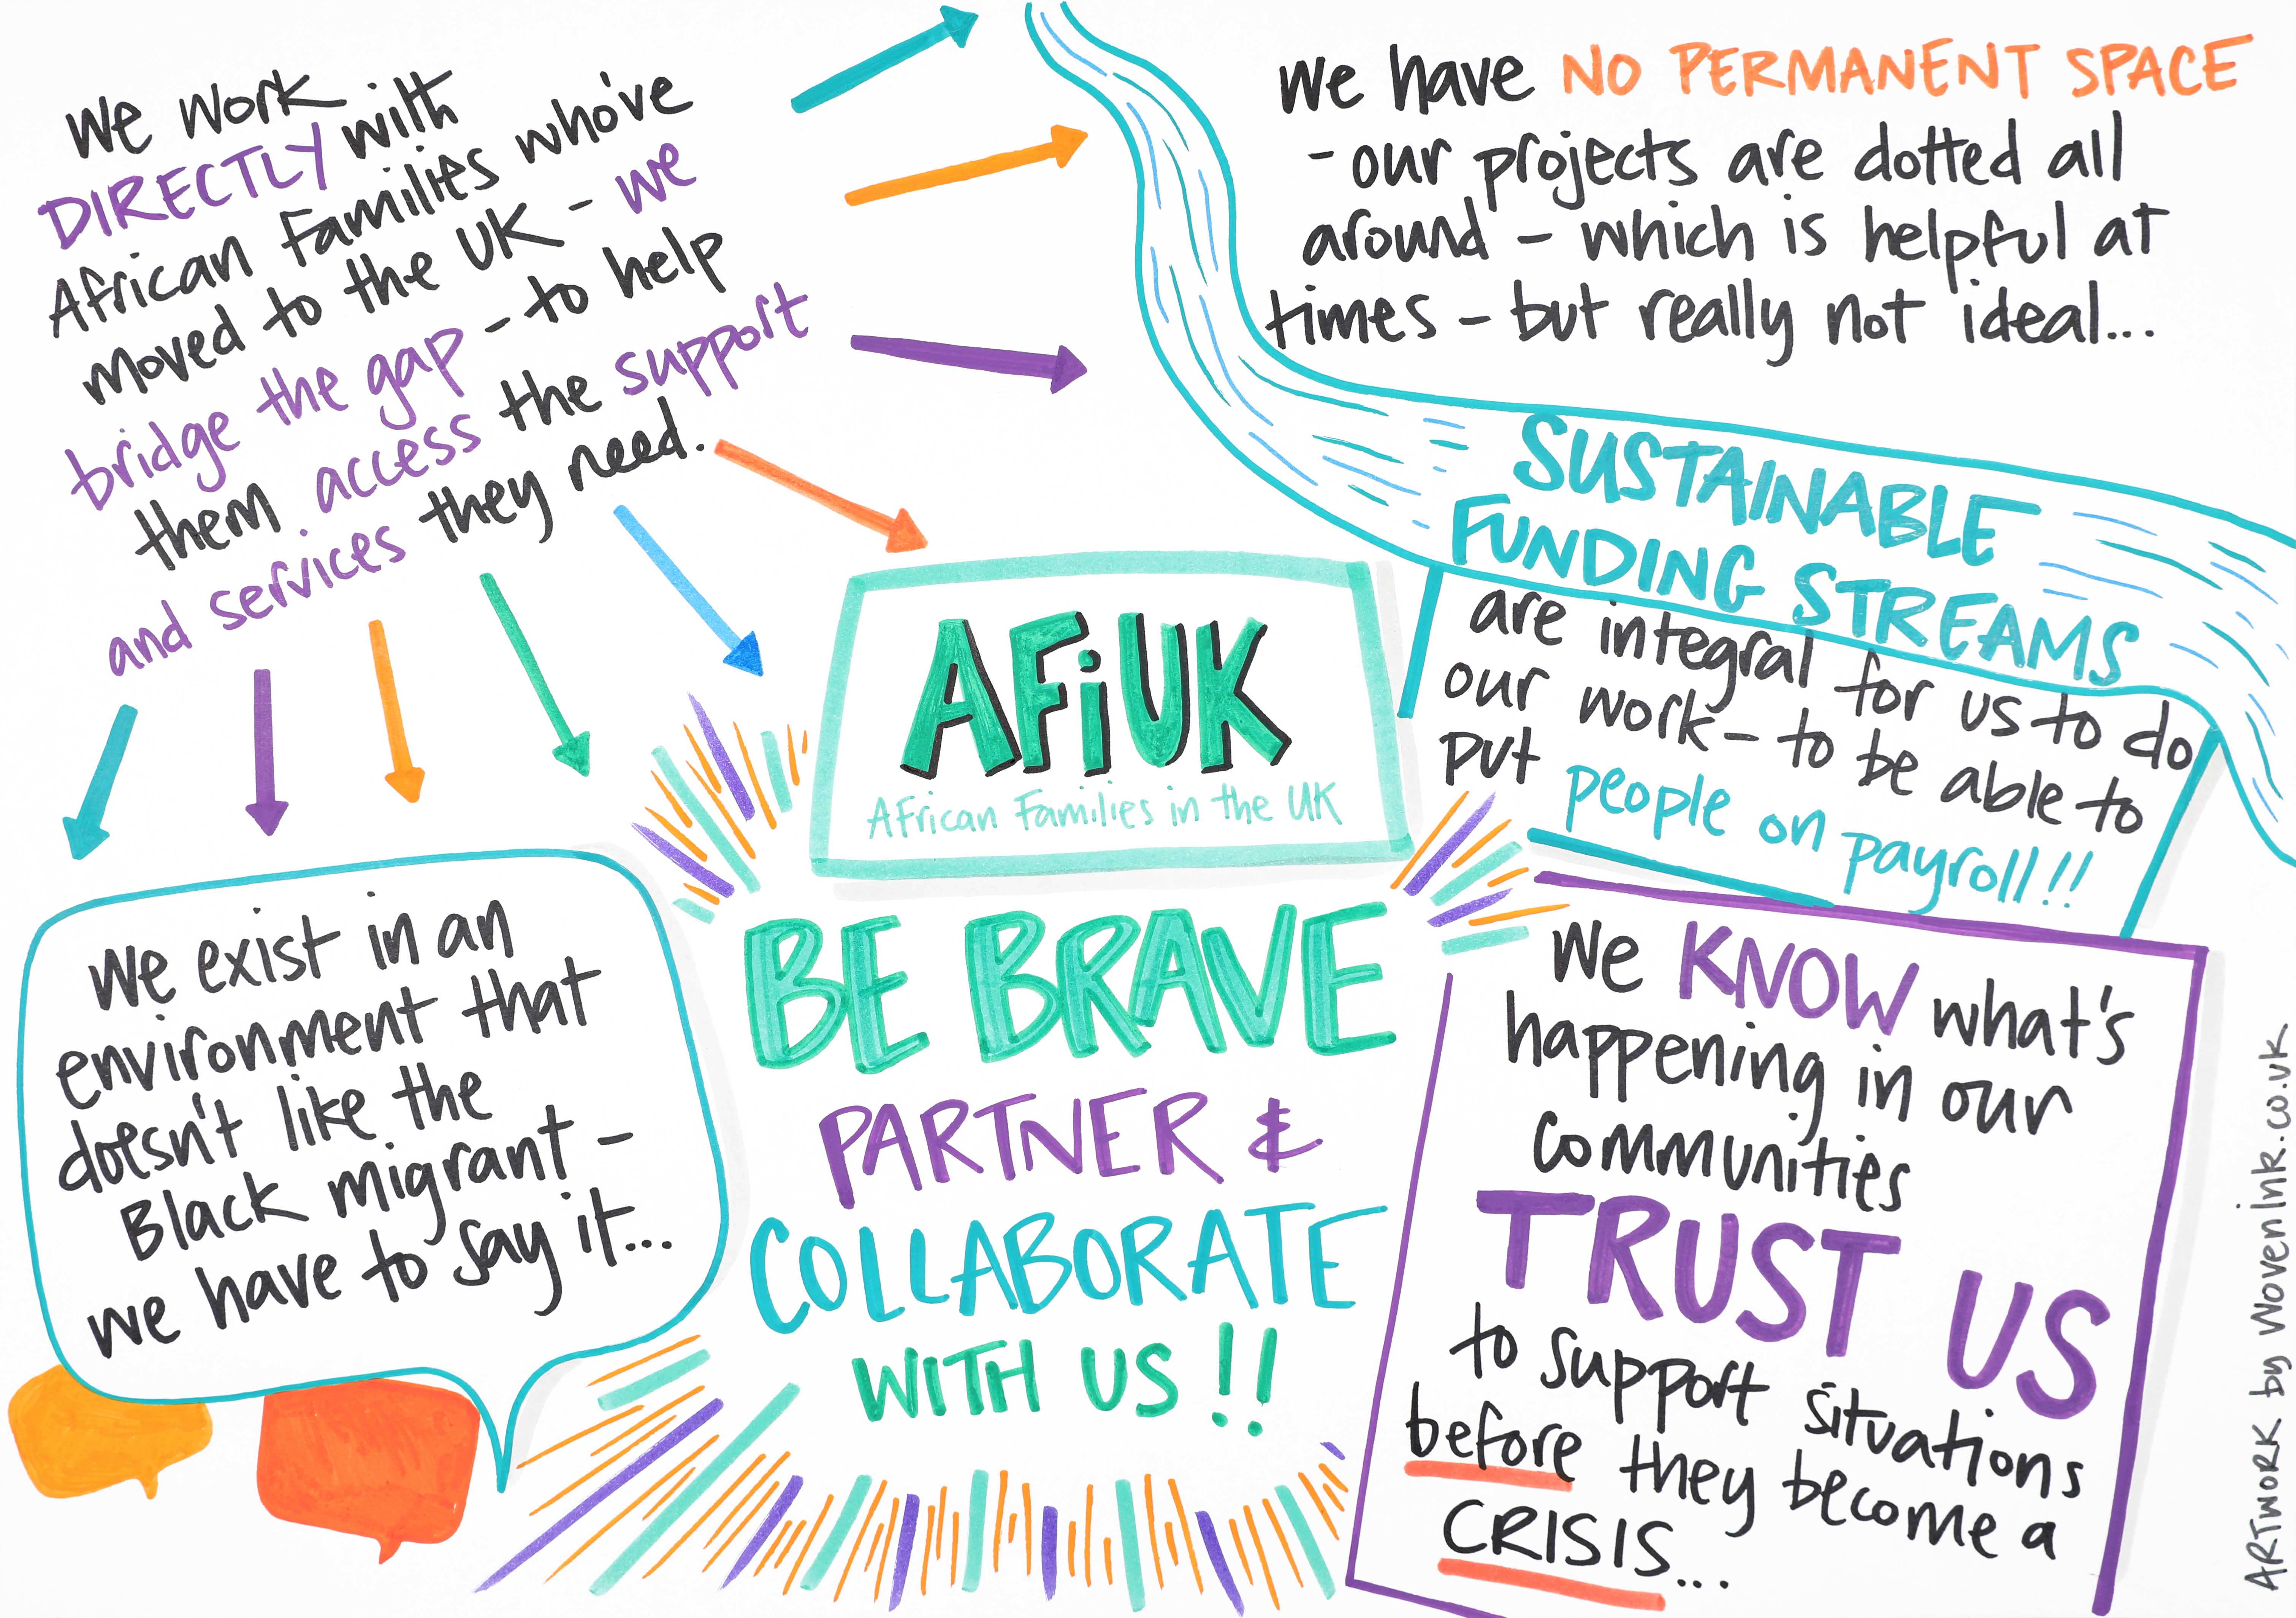 We work
DIRECTLY with
African Families who've
moved to the UK - we
bridge the gap - to help
them access the support
and services they need.
We have NO PERMANENT SPACE
- our projects are dotted all
around - which is helpful at
times - but really not ideal...
SUSTAINABLE
FUNDING STREAMS
are integral for us to do
our work - to be able to
put people on payroll!!
AFiUK
African Families in the UK
BE BRAVE
PARTNER &
COLLABORATE
WITH US!!
We exist in an
environment that
doesn't like the
Black migrant -
we have to say it...
We KNOW what's
happening in our
communities
TRUST US
to support situations
before they become a
CRISIS...
ARTWORK by wovenink.co.uk